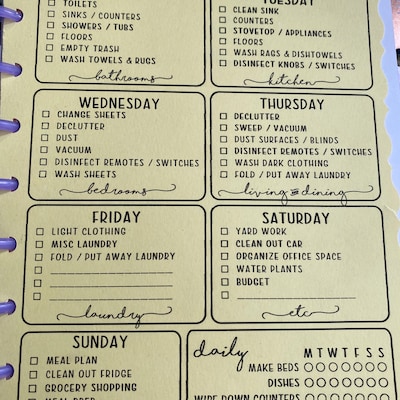 TOILETS
SINKS / COUNTERS
SHOWERS / TUBS
FLOORS
EMPTY TRASH
WASH TOWELS & RUGS
bathrooms
TUESDAY
CLEAN SINK
COUNTERS
STOVETOP / APPLIANCES
FLOORS
WASH RAGS & DISHTOWELS
DISINFECT KNOBS / SWITCHES
kitchen
WEDNESDAY
CHANGE SHEETS
DECLUTTER
DUST
VACUUM
DISINFECT REMOTES / SWITCHES
WASH SHEETS
bedrooms
THURSDAY
DECLUTTER
SWEEP / VACUUM
DUST SURFACES / BLINDS
DISINFECT REMOTES / SWITCHES
WASH DARK CLOTHING
FOLD / PUT AWAY LAUNDRY
living & dining
FRIDAY
LIGHT CLOTHING
MISC LAUNDRY
FOLD / PUT AWAY LAUNDRY
laundry
SATURDAY
YARD WORK
CLEAN OUT CAR
ORGANIZE OFFICE SPACE
WATER PLANTS
BUDGET
etc
SUNDAY
MEAL PLAN
CLEAN OUT FRIDGE
GROCERY SHOPPING
MEAL PREP
daily
M T W T F S S
MAKE BEDS
DISHES
WIPE DOWN COUNTERS